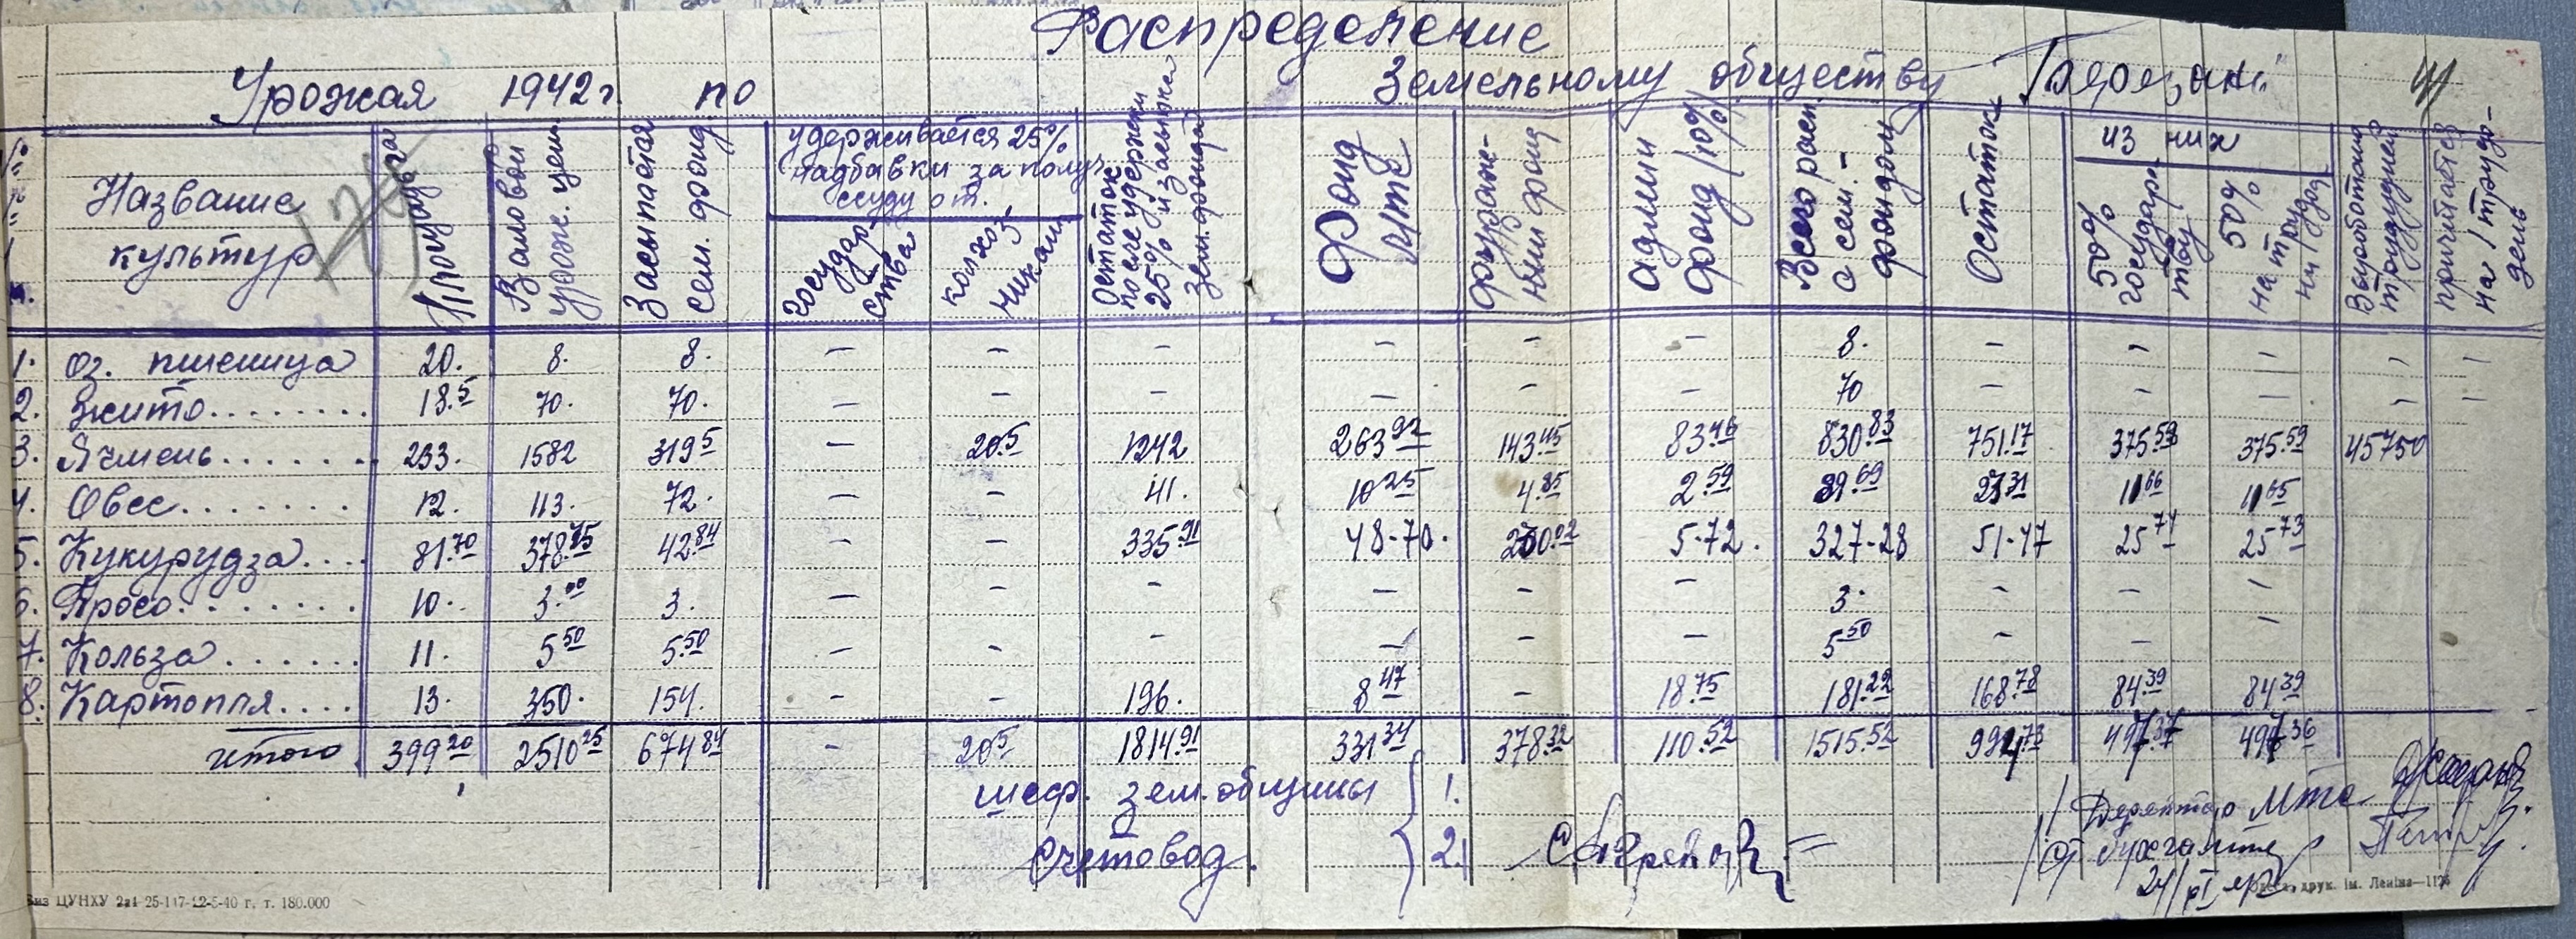 Распределение
Урожая 1942 г. по Земельному обществу
41
№
Название культур
Площадь га
Валовой урож. цен.
Засыпается сем. фонд
удерживается 25% надбавки за получ. ссуду от.
государства
колхозникам
Остаток после удержки 25% и засыпки сем. фонда
Фонд МТС
фуражный фонд
админ фонд /10%/
Всего расп. с сем. фондом
Остаток
из них
50% государству
50% на трудодни
Выработано трудодней
причитается на 1 трудодень
1. Оз. пшеница 20. 8. 8. – – – – – – 8. – – – – –
2. Жито........ 18.5 70. 70. – – – – – – 70 – – – – –
3. Ячмень....... 233. 1582 319 5 – 20.5 1242 263 92 143.45 83 46 830.83 751.17 375.59 375.59 45750
4. Овес....... 12. 113. 72. – – 41. 10 25 4.85 2.59 89.69 23 31 11 66 11 65
5. Кукурудза.... 81.70 378.75 42.84 – – 335.91 48-70. 260.02 5-72. 327-28 51-47 25 74 25 73
6. Просо........ 10. 3.00 3. – – – – – – 3. – – –
7. Кольза...... 11. 5 50 5.50 – – – – – – 5 50 – – –
8. Картопля.... 13. 350. 154. – – 196. 8 47 – 18.75 181.22 168.78 84.39 84 39
итого. 399 20 2510 25 674 84 – 20 5 1814.91 331 34 378.32 110.52 1515.52 994 73 497.37 497 36
шеф. зем. общины 1.
Счетовод. 2.
Директор МТС
Ст бухгалтер
Виз ЦУНХУ 2в4 25-117-12-5-40 г. т. 180.000
друк. ім. Леніна—11